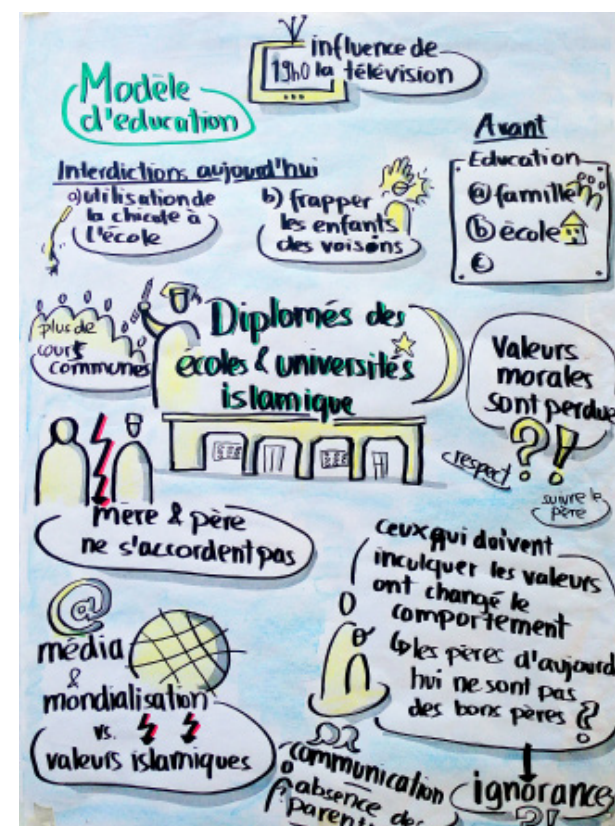 influence de
19h0 la télévision
Modèle
d'education
Avant
Education
a famille
b école
c
Interdictions aujourd'hui
a) utilisation de
la chicote à
l'école
b) frapper
les enfants
des voisons
plus de
cours
communes
Diplomés des
écoles & universités
islamique
Valeurs
morales
sont perdue
?!
respect
suivre le
père
mère & père
ne s'accordent pas
ceux qui doivent
inculquer les valeurs
ont changé le
comportement
↳ les pères d'aujourd
hui ne sont pas
des bons pères ?
@
média
&
mondialisation
vs.
valeurs islamiques
communication
absence des
parent
ignorance
?!